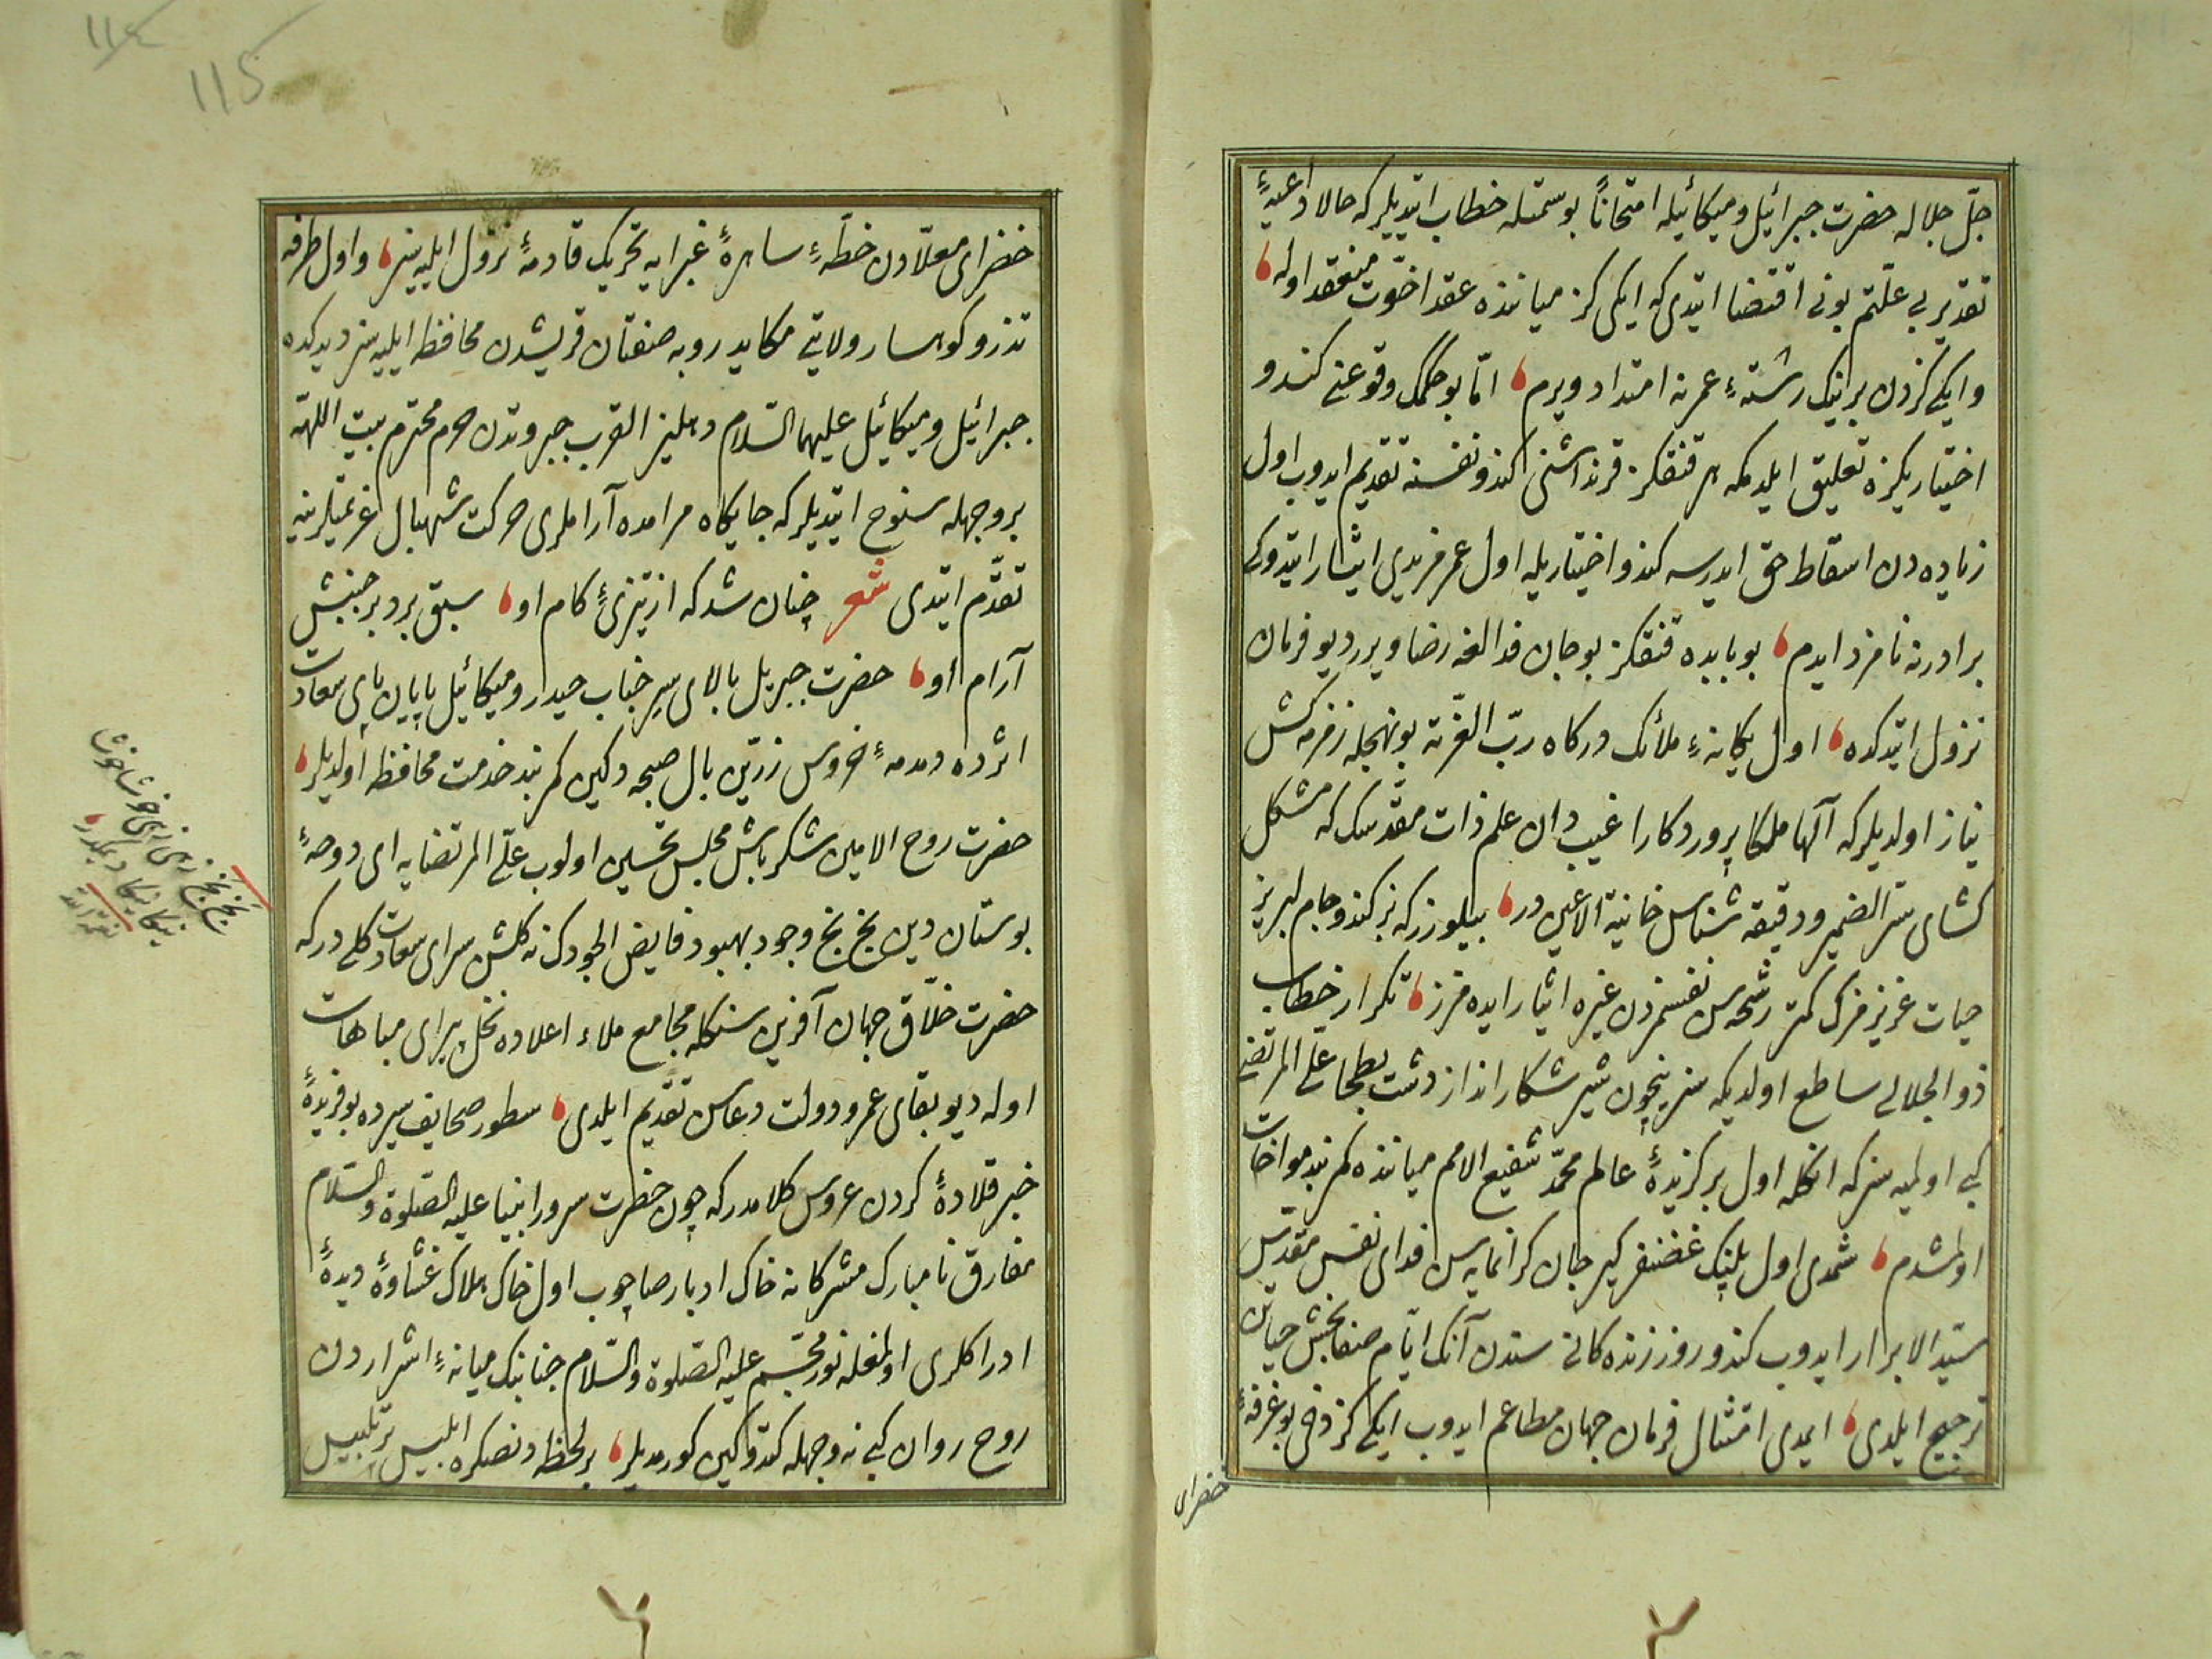 جلّ جلاله حضرت جبرائيل وميكائيله امتحاناً بو سمتله خطاب ايتديلر كه حالا داعيهٔ
تقدير بى علّتم بونى اقتضا ايتدى كه ايكى كز ميانزده عقد اخوّت منعقد اوله
وايكيكزدن برينك رشتهٔ عمرنه امتداد ويرم امّا بو حكمك وقوعنى كندو
اختياريكزه تعليق ايلدم كه هر قنقكز قرنداشنى كندو نفسنه تقديم ايدوب اول
زياده دن اسقاط حق ايدرسه كندو اختياريله اول عمر مزيدى ايثار ايتدوكى
برادرنه نامزد ايدم بو بابده قنقكز بو جان فدالغه رضا ويرر ديو فرمان
نزول ايتدكده اول يكانهٔ ملائك دركاه ربّ العزّته بو نهجله زمزمه كش
نياز اولديلر كه آلها ملكا پروردكارا غيب دان علم ذات مقدّسك كه مشكل
كشاى سرّ الضمير ودقيقه شناس خائنة الاعين در بيلورز كه بز كندو جام لبريز
حيات عزيزمزك كمتر رشحه سن نفسمزدن غيره ايثار ايده مزز تكرار خطاب
ذو الجلالى ساطع اولديكه سز نيچون شير شكار انداز دشت بطحا علىّ المرتضى
كبى اولميه سز كه انكله اول بركزيدهٔ عالم محمّد شفيع الامم ميانزده كمربند مواخات
اولمشدم شمدى اول پلنك غضنفر كير جان كرانمايه سن فداى نفس مقدّس
سيّد الابرار ايدوب كندو روز زنده كانى سندن آنك ايّام صفابخش حياتن
ترجيح ايلدى ايمدى امتثال فرمان جهان مطاعم ايدوب ايكيكز دخى بو غرفهٔ
خضراى
115
خضراى معلّادن خطّهٔ ساهرهٔ غبرايه تحريك قادمهٔ نزول ايليه سز واول طرفه
تذرو كوهسار ولايتى مكايد روبه صفتان قريشدن محافظه ايليه سز ديدكده
جبرائيل وميكائيل عليهما السّلام دهليز القرب جبروتدن حرم محترم بيت اللّهه
بر وجهله سنوح ايتديلر كه جايكاه مرامده آراملرى حركت شهبال عزيمتلرينه
تقدّم ايتدى شعر چنان شد كه از تيزىٔ كام او سبق برد بر جنبش
آرام او حضرت جبريل بالاى سر جناب حيدر وميكائيل پايان پاى سعادت
اثرده دمدمهٔ خروس زرّين بال صبحه دكين كمربند خدمت محافظه اولديلر
حضرت روح الامين شكرپاش مجلس تحسين اولوب علىّ المرتضايه اى دوحهٔ
بوستان دين بخ بخ وجود بهبود فايض الجودك نه كلشن سراى سعادت كلى در كه
حضرت خلّاق جهان آفرين سنكله مجامع ملاء اعلاده نخل پيراى مباهات
اوله ديو بقاى عمر ودولت دعاسن تقديم ايلدى سطور صحايف سيرده بو فريدهٔ
خبر قلادهٔ كردن عروس كلامدر كه چون حضرت سرور انبيا عليه الصّلوة والسّلام
مفارق نامبارك مشركانه خاك ادبار صاچوب اول خاك هلاك غشاوهٔ ديدهٔ
ادراكلرى اولمغله نور مجسّم عليه الصّلوة والسّلام جنابنك ميانهٔ اشراردن
روح روان كبى نه وجهله كتدوكين كورمديلر بر لحظه دنصكره ابليس پر تلبيس
بخ بخ